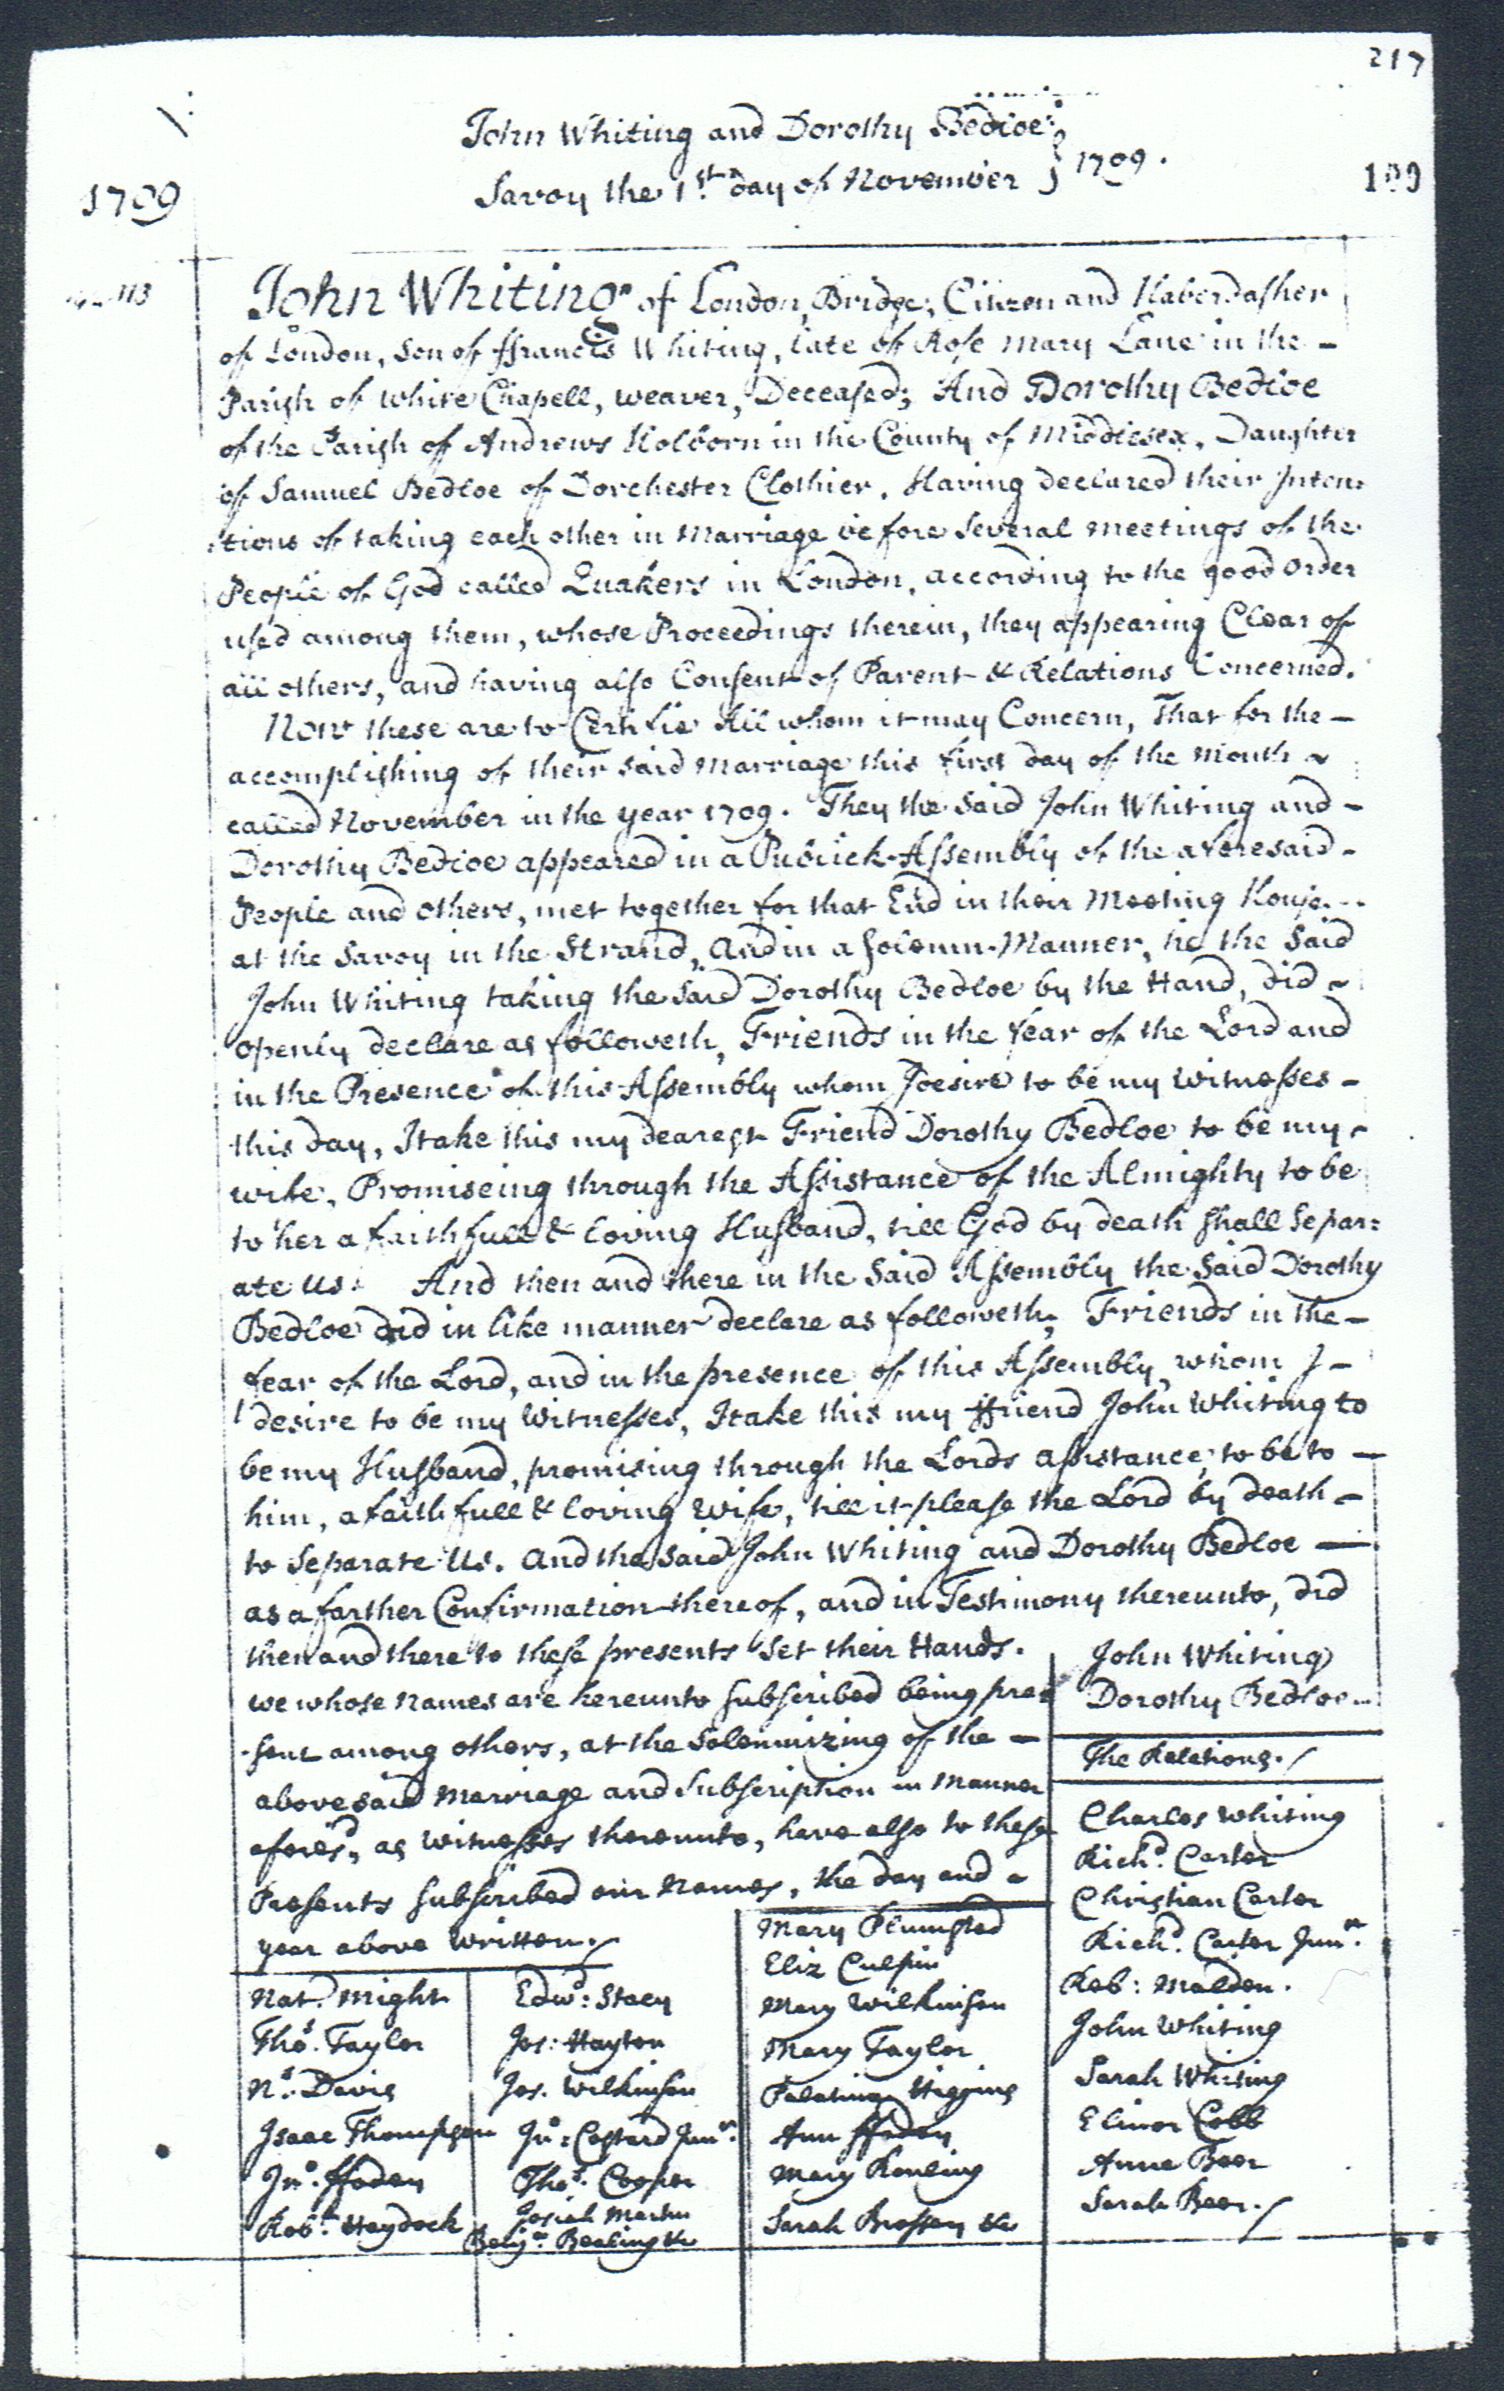 217
John Whiting and Dorothy Bedloe
Savoy the 1st day of November } 1709.
1709
199
113
John Whiting of London, Bridge, Citizen and Haberdasher
of London, Son of ffrancis Whiting, late of Rose Mary Lane in the -
Parish of white Chapell, weaver, Deceased; And Dorothy Bedloe
of the Parish of Andrews Holborn in the County of Middlesex, Daughter
of Samuel Bedloe of Dorchester Clothier. Having declared their Inten:
:tions of taking each other in Marriage before Several meetings of the
People of God called Quakers in London, according to the good Order
used among them, whose Proceedings therein, they appearing Clear of
all others, and having also Consent of Parent & Relations Concerned.
Now these are to Certifie All whom it may Concern, That for the -
accomplishing of their said Marriage this first day of the Month ~
called November in the year 1709. They the Said John Whiting and -
Dorothy Bedloe appeared in a Publick Assembly of the aforesaid -
People and others, met together for that End in their Meeting House
at the Savoy in the Strand, And in a Solemn Manner, he the Said
John Whiting taking the Said Dorothy Bedloe by the Hand, did ~
openly declare as followeth, Friends in the fear of the Lord and
in the Presence of this Assembly whom I desire to be my Witnesses -
this day, I take this my dearest Friend Dorothy Bedloe to be my -
wife, Promiseing through the Assistance of the Almighty to be
to her a faithfull & loving Husband, till God by death shall Separ:
ate us. And then and there in the Said Assembly the Said Dorothy
Bedloe did in like manner declare as followeth, Friends in the -
fear of the Lord, and in the presence of this Assembly, whom I -
desire to be my Witnesses, I take this my ffriend John Whiting to
be my Husband, promising through the Lords assistance, to be to -
him, a faithfull & loving Wife, till it please the Lord by death -
to Separate Us. And the said John Whiting and Dorothy Bedloe -
as a farther Confirmation thereof, and in Testimony thereunto, did
then and there to these presents Set their Hands.
John Whiting
Dorothy Bedloe
we whose Names are hereunto Subscribed being pre
-sent among others, at the Solemnizing of the -
abovesaid Marriage and Subscription in Manner
aforesd, as Witnesses thereunto, have also to these
Presents Subscribed our Names, the day and
year above Written.
The Relations.
Charles Whiting
Richd. Carter
Christian Carter
Richd. Carter Junr.
Rob: Maldon.
John Whiting
Sarah Whiting
Elinor Cobb
Anne Beer
Sarah Beer.
Nat. Might
Thos. Taylor
Ns. Davis
Isaac Thompson
Jno. ffoden
Robt. Haydock
Edwd: Stacy
Jos: Hayton
Jos. Wilkinson
Jno: Costard Junr.
Thos. Cooper
Josiah Martin
Benjn. Bealing &c
Mary Plumsted
Eliz Culpin
Mary Wilkinson
Mary Taylor
Palatina Higgins
Ann ffoden
Mary Kenling
Sarah Brassey &c